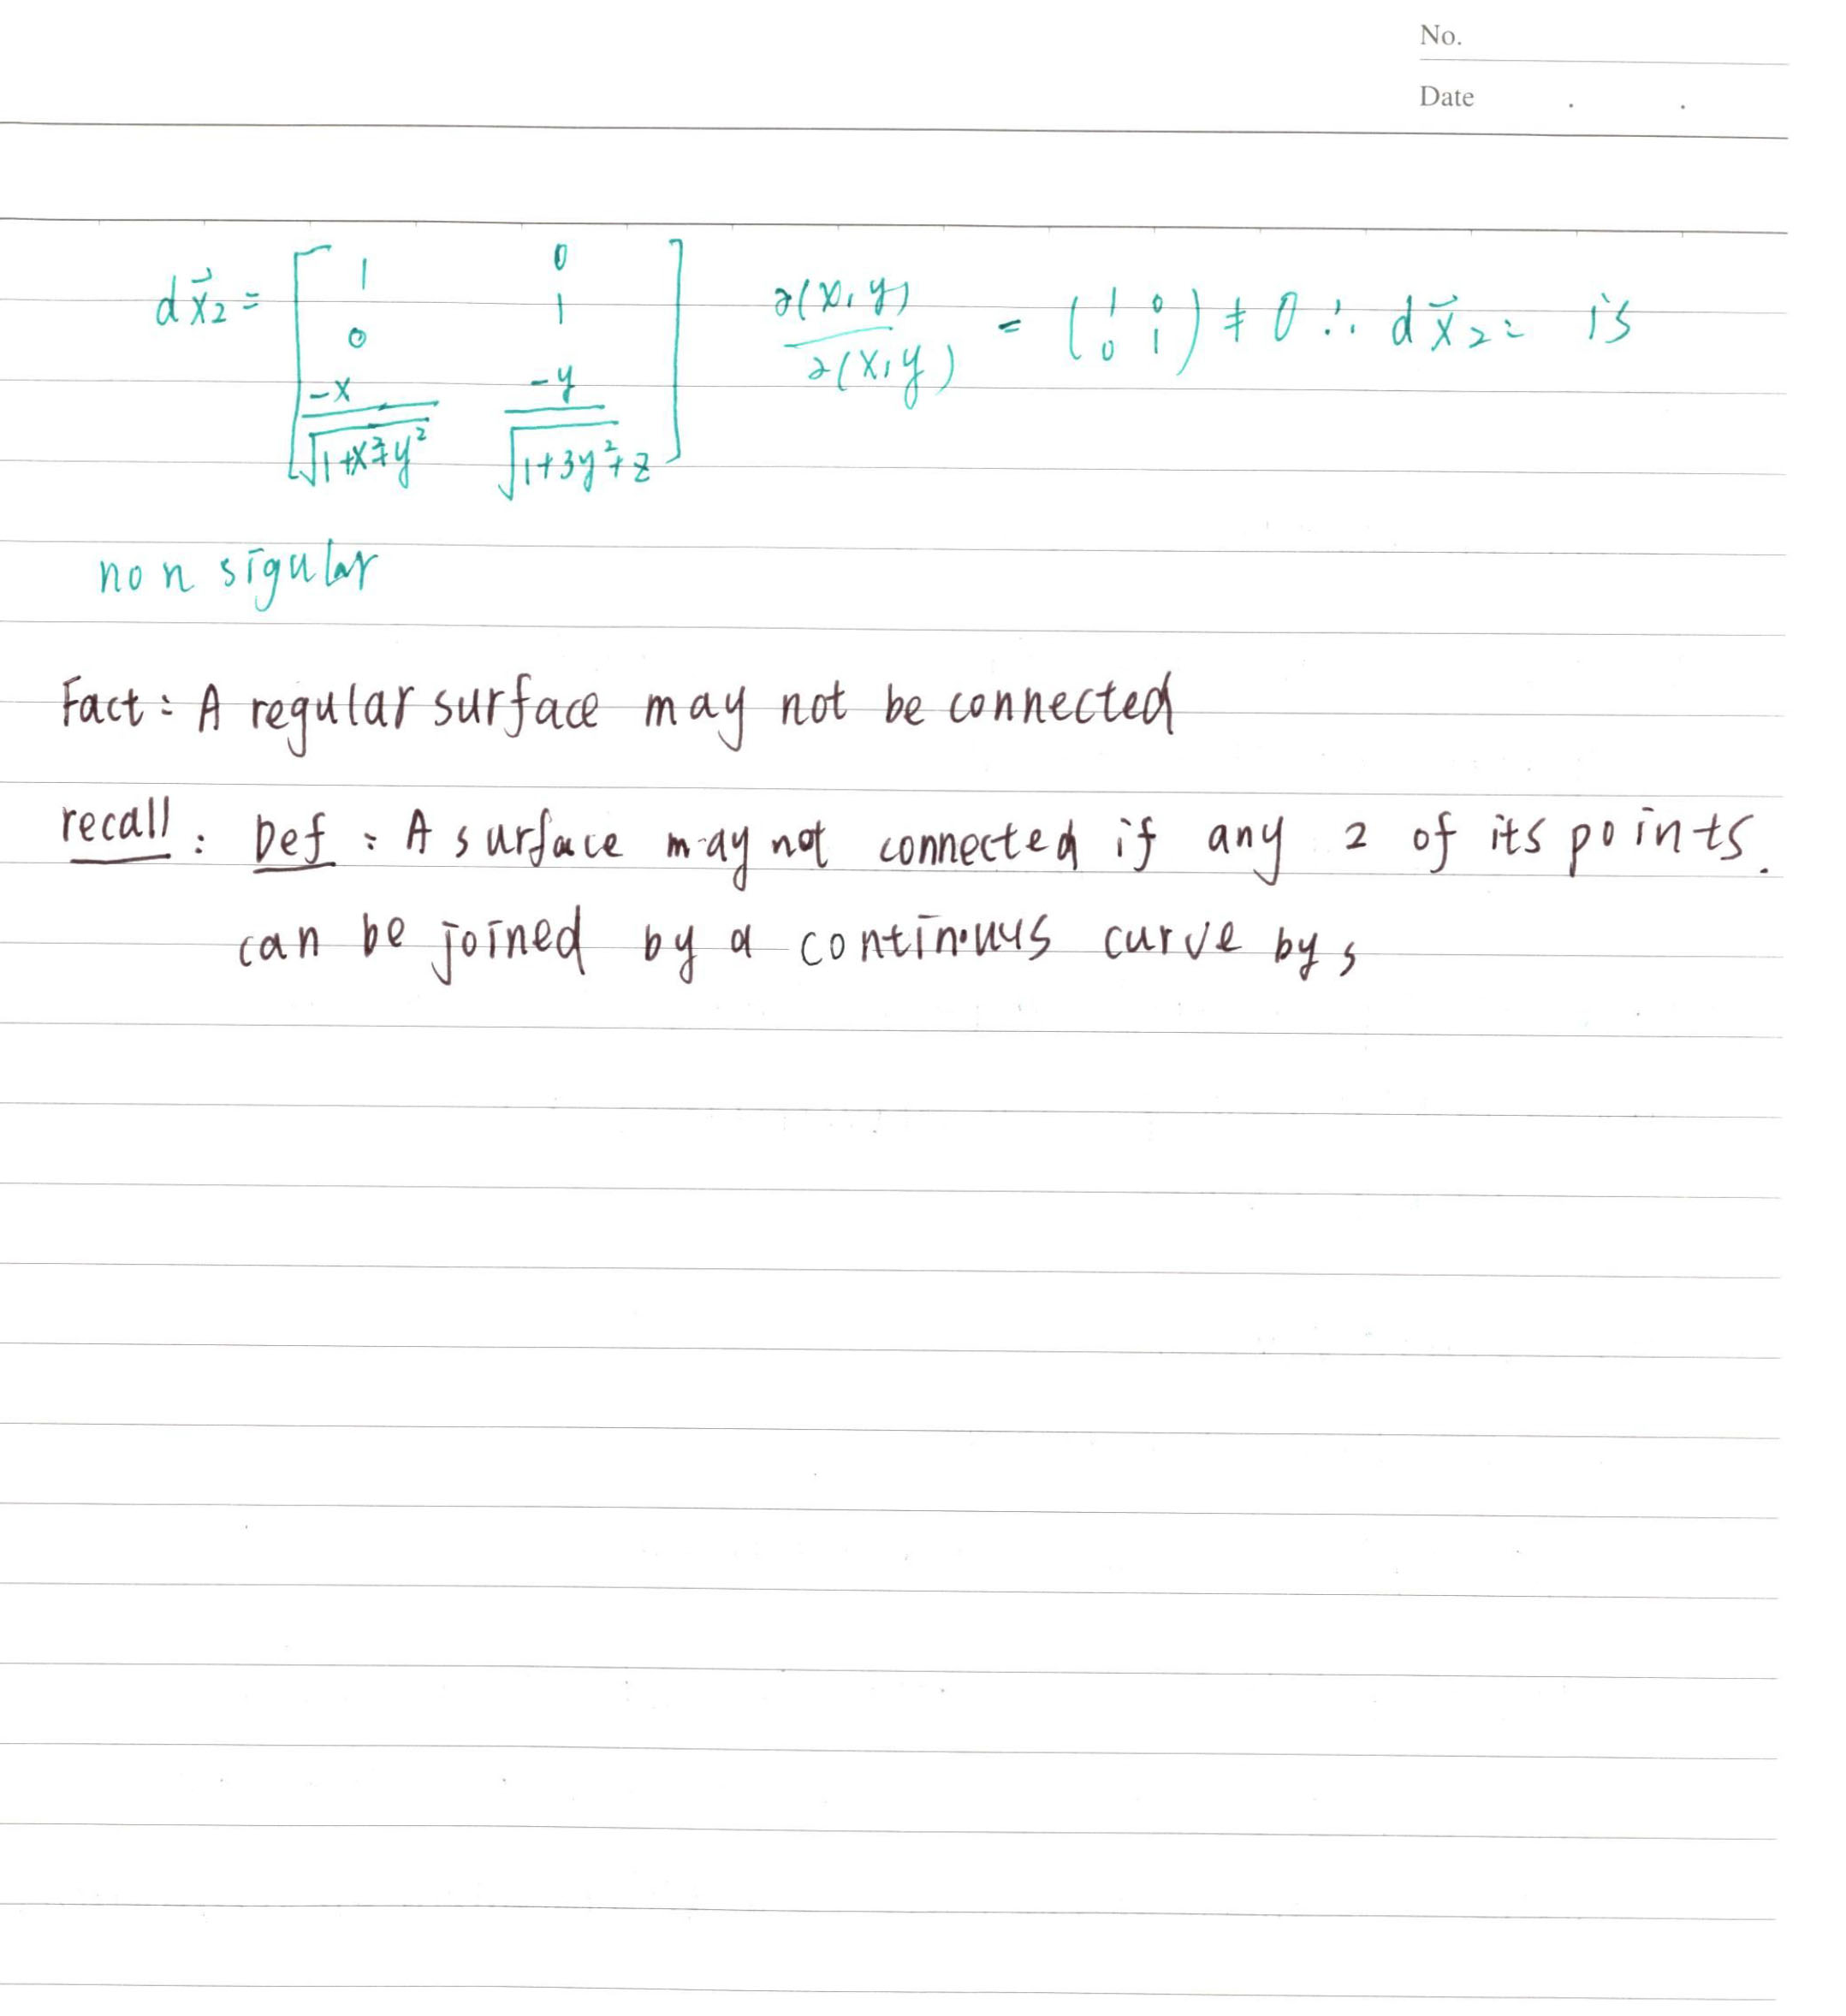 No.
Date . .
d x⃗₂ = [ 1 0 ; 0 1 ; -x/√(1+x²+y²) -y/√(1+3y²+z) ] ∂(x,y)/∂(x,y) = ( 1 0 ; 0 1 ) ≠ 0 ∴ d x⃗₂ = is
non sigular
Fact: A regular surface may not be connected
recall: Def: A surface may not connected if any 2 of its points.
can be joined by a continuus curve by s